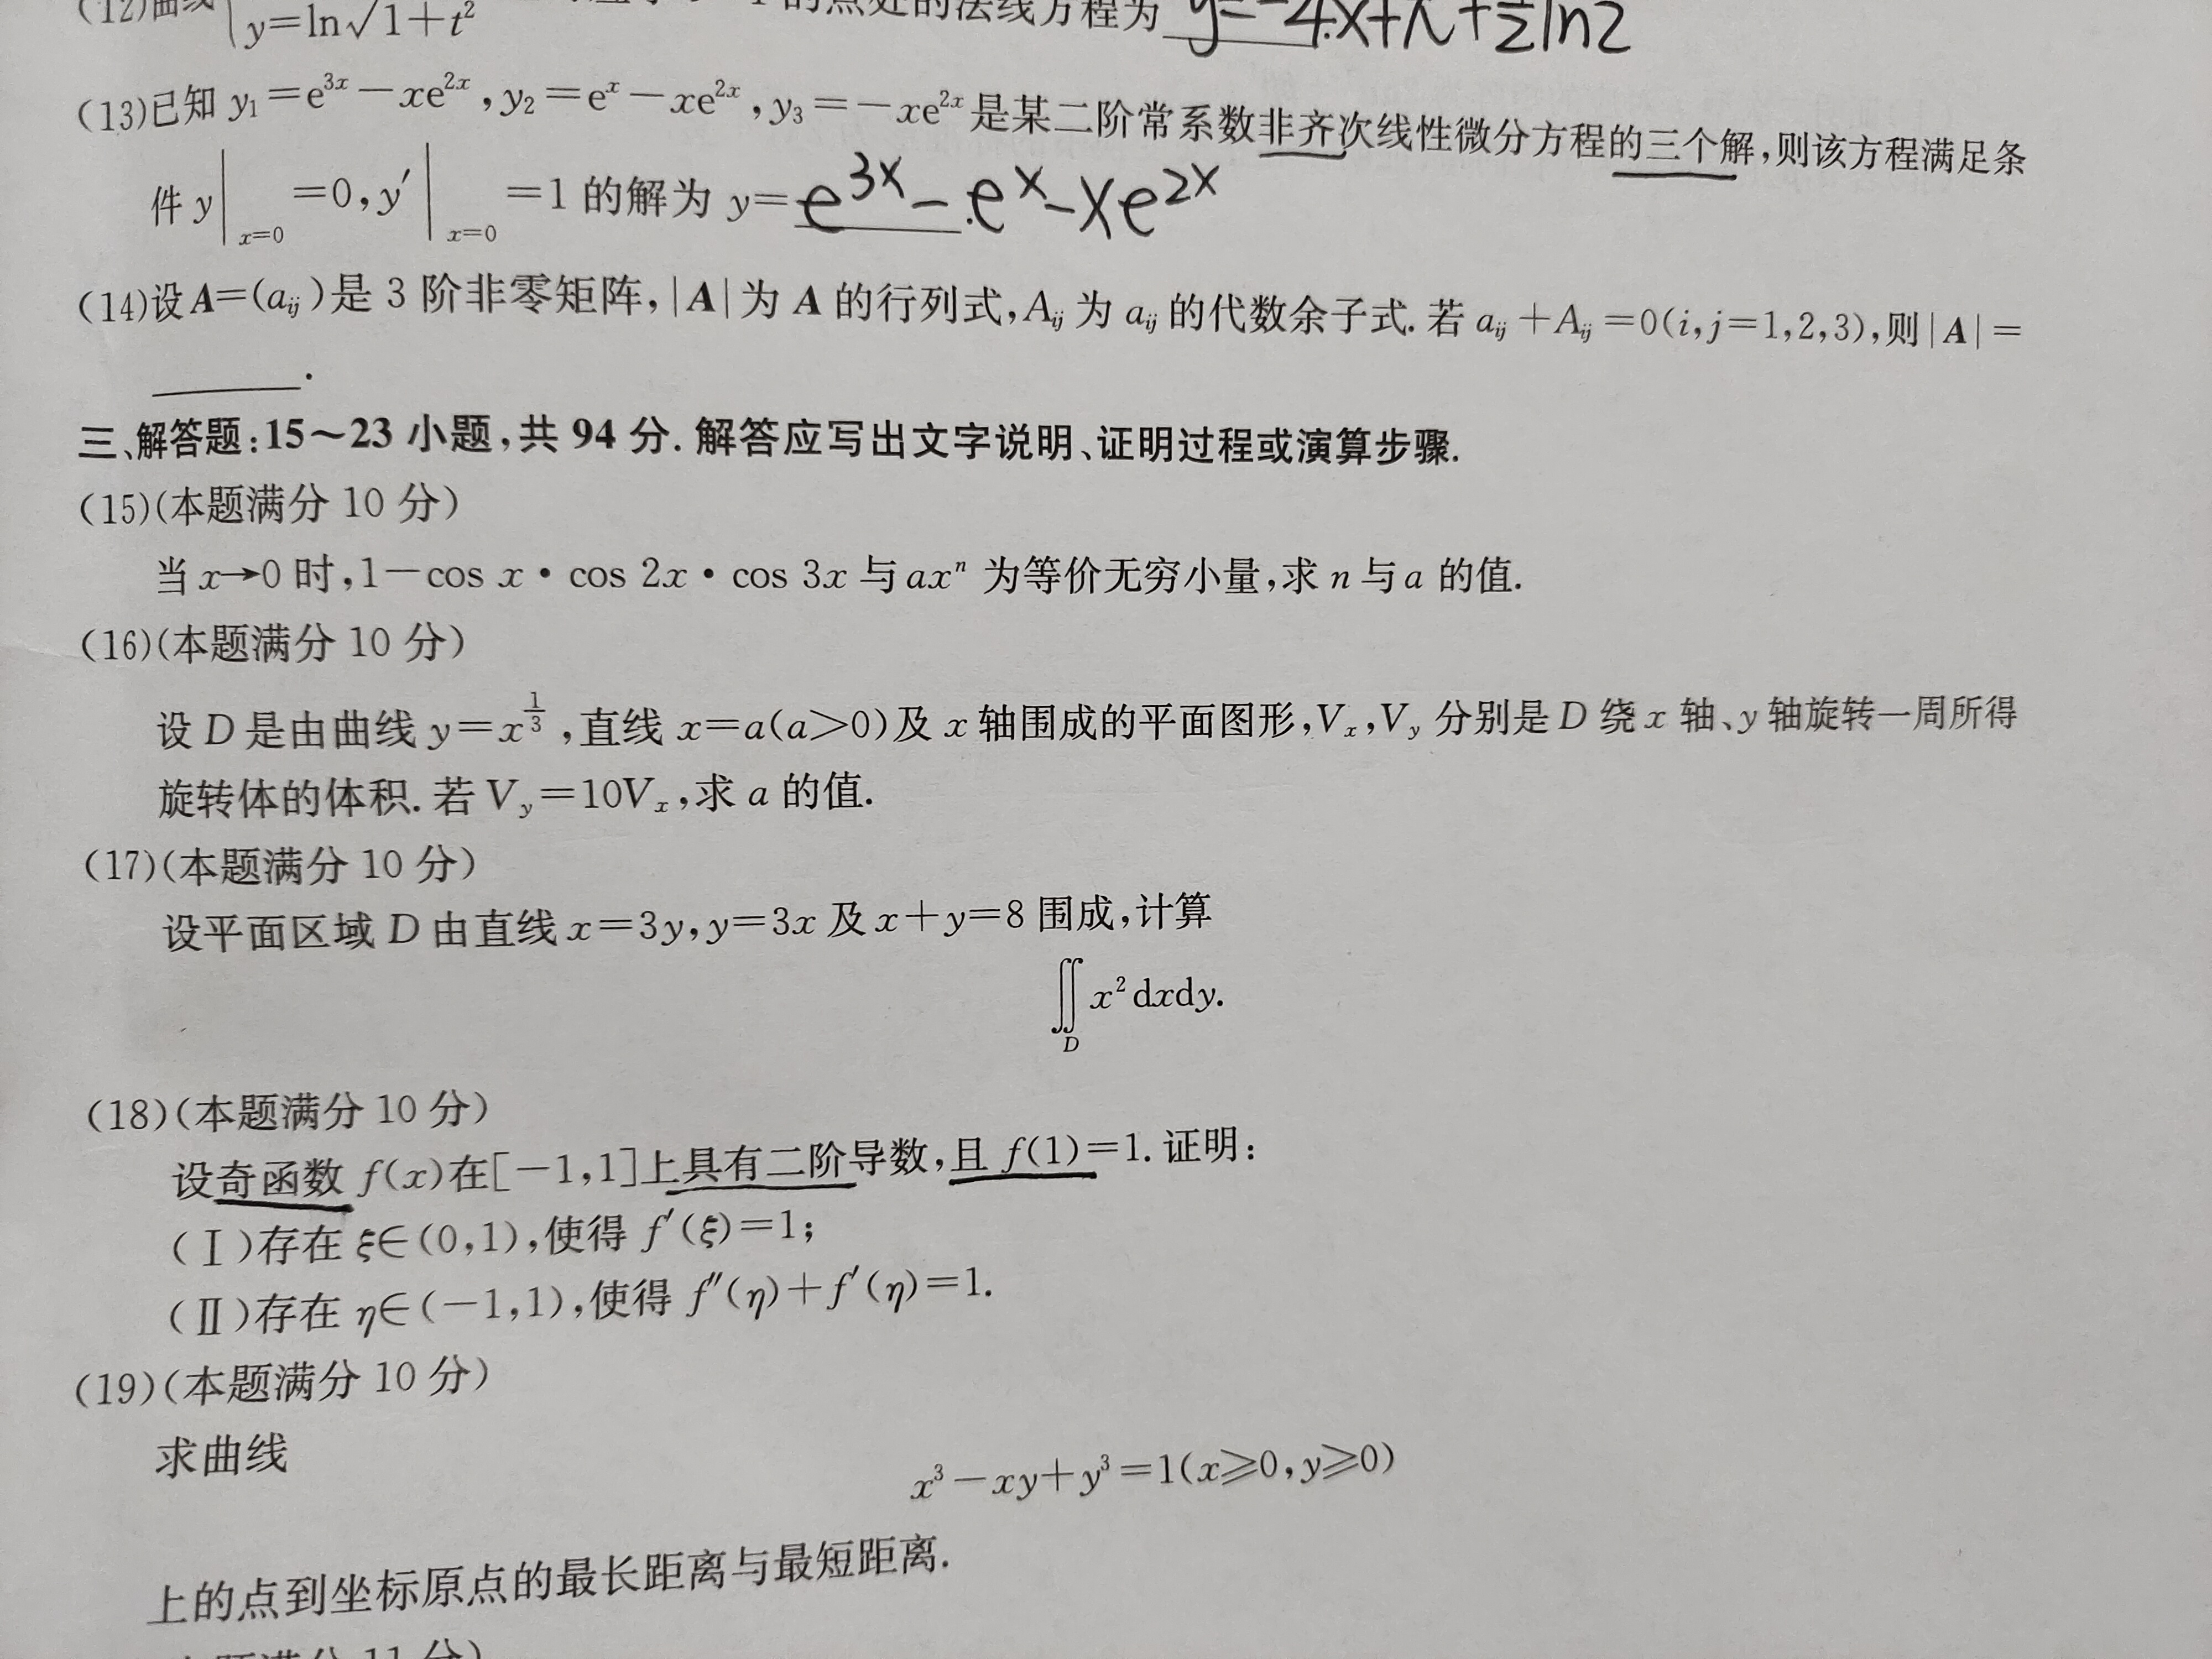 (12)曲线 y=ln√1+t² 的点处的法线方程为 y=-4x+π+½ln2
(13)已知 y₁=e³ˣ-xe²ˣ,y₂=eˣ-xe²ˣ,y₃=-xe²ˣ是某二阶常系数非齐次线性微分方程的三个解,则该方程满足条
件 y|ₓ₌₀=0,y′|ₓ₌₀=1 的解为 y=e³ˣ-eˣ-xe²ˣ
(14)设A=(aᵢⱼ)是 3 阶非零矩阵,|A|为 A 的行列式,Aᵢⱼ为 aᵢⱼ的代数余子式.若 aᵢⱼ+Aᵢⱼ=0(i,j=1,2,3),则|A|=
______.
三、解答题:15~23 小题,共 94 分.解答应写出文字说明、证明过程或演算步骤.
(15)(本题满分 10 分)
当 x→0 时,1-cos x·cos 2x·cos 3x 与axⁿ 为等价无穷小量,求 n 与a 的值.
(16)(本题满分 10 分)
设 D 是由曲线 y=x^(1/3),直线 x=a(a>0)及 x 轴围成的平面图形,Vₓ,V_y 分别是 D 绕 x 轴、y 轴旋转一周所得
旋转体的体积.若 V_y=10Vₓ,求 a 的值.
(17)(本题满分 10 分)
设平面区域 D 由直线 x=3y,y=3x 及 x+y=8 围成,计算
∬_D x²dxdy.
(18)(本题满分 10 分)
设奇函数 f(x)在[-1,1]上具有二阶导数,且 f(1)=1.证明:
(Ⅰ)存在 ξ∈(0,1),使得 f′(ξ)=1;
(Ⅱ)存在 η∈(-1,1),使得 f″(η)+f′(η)=1.
(19)(本题满分 10 分)
求曲线
x³-xy+y³=1(x≥0,y≥0)
上的点到坐标原点的最长距离与最短距离.
本题满分 11 分)